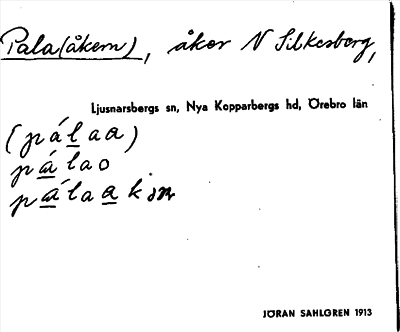 Pala(åkern), åker N Silkesberg,
Ljusnarsbergs sn, Nya Kopparbergs hd, Örebro län
(pálaa)
pálao
pálaakɷn
JÖRAN SAHLGREN 1913